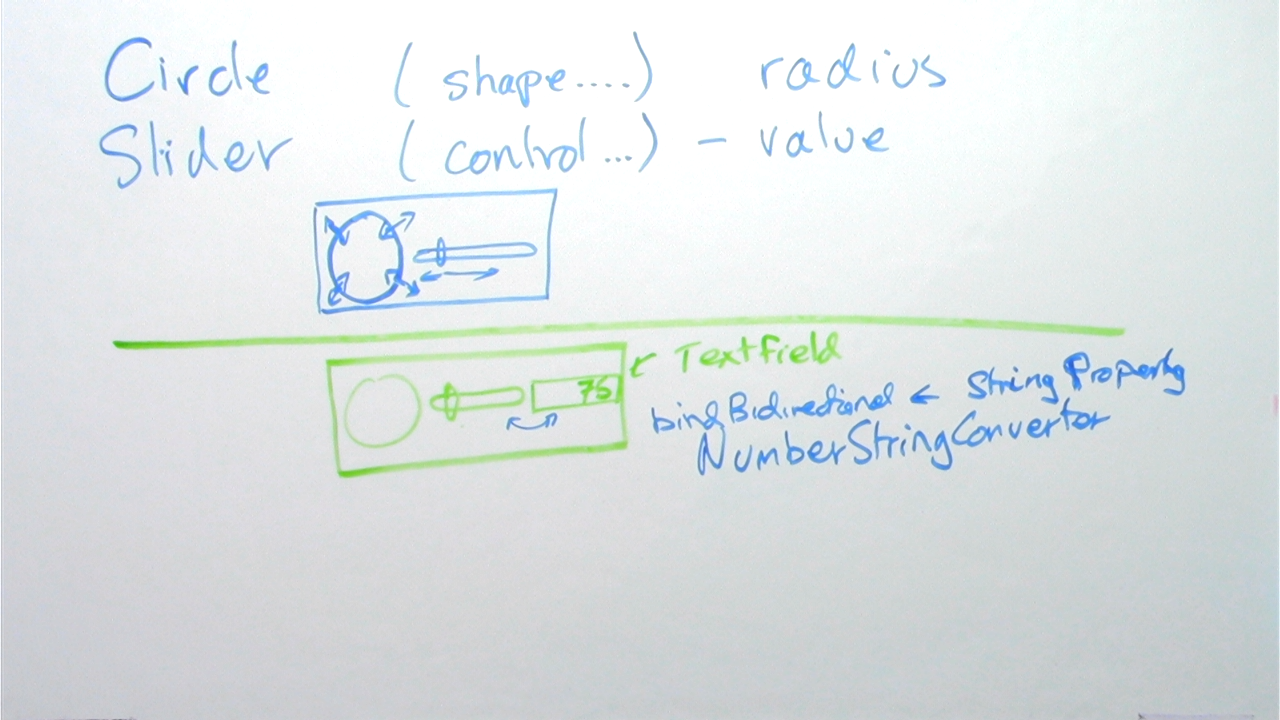 Circle (shape....) radius
Slider (control...) - value
TextField
75
bindBidirectional ← StringProperty
NumberStringConvertor